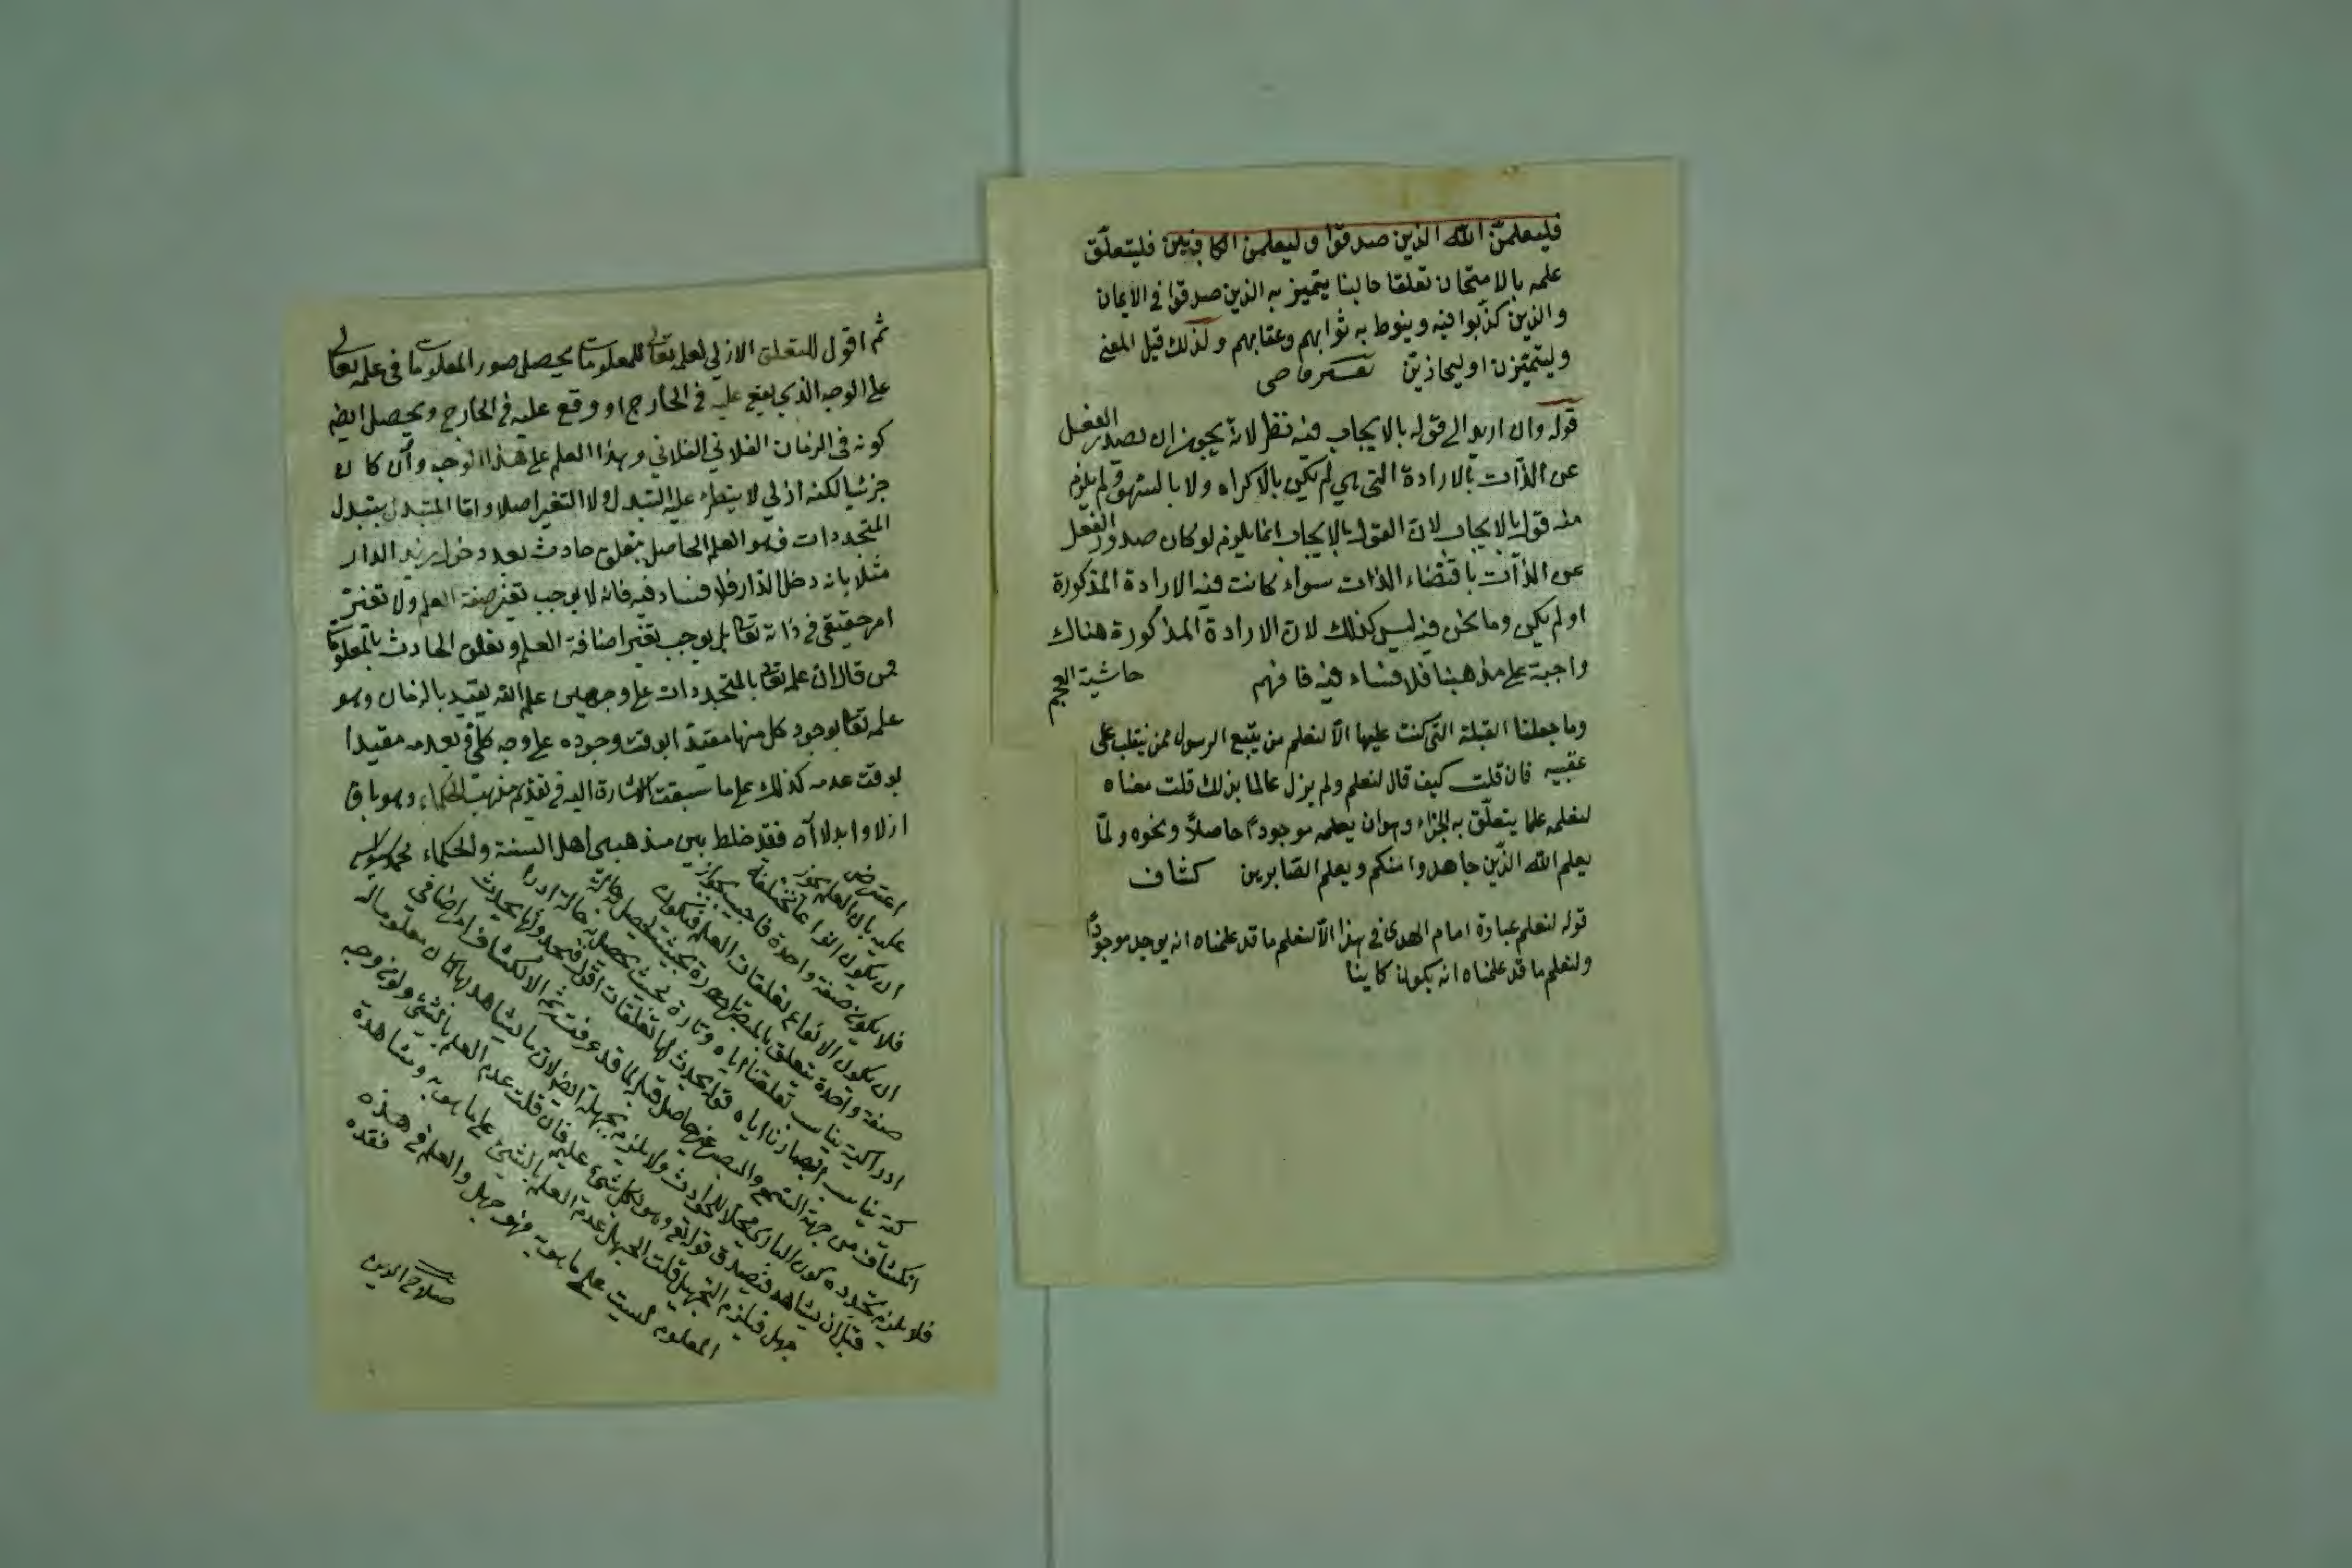 فليعلمن الله الذين صدقوا وليعلمن الكاذبين فليتعلّق
علمه بالامتحان تعلقا حاليا يتميز به الذين صدقوا في الايمان
والذين كذبوا فيه وينوط به ثوابهم وعقابهم ولذلك قيل المعنى
وليتميّزن او ليجازينّ
قوله وان اريد الى قوله بالايجاب فيه نظر لانه يجوز ان يصدر الفعل
عن الذّات بالارادة التي هي لم تكن بالاكراه ولا بالسهو ولم يلزم
منه قول بالايجاب لان القول بالايجاب انما يلزم لو كان صدور الفعل
عن الذّات باقتضاء الذات سواء كانت فيه الارادة المذكورة
او لم يكن وما نحن فيه ليس كذلك لان الارادة المذكورة هناك
واجبة على مذهبنا فلا فساد فيه فافهم حاشية العجم
وما جعلنا القبلة التي كنت عليها الّا لنعلم من يتّبع الرسول ممن ينقلب على
عقبيه فان قلت كيف قال لنعلم ولم يزل عالما بذلك قلت معناه
لنعلمه علما يتعلّق به الجزاء وهو ان يعلمه موجودًا حاصلًا ونحوه ولمّا
يعلم الله الّذين جاهدوا منكم ويعلم الصّابرين كشاف
قوله لنعلم عبارة امام الهدى في هذا الّا لنعلم ما قد علمناه انه يوجد موجودًا
ولنعلم ما قد علمناه انه يكون كاينا
ثم اقول للتعلق الازلي لعلمه تعالى للمعلومات يحصل صور المعلومات في علمه تعالى
على الوجه الذي يقع عليه في الخارج او وقع عليه في الخارج ويحصل ايضا
كونه في الزمان الفلاني الفلاني وهذا العلم على هذا الوجه وان كان
جزئيا لكنه ازلي لا يتطرق عليه التبدل ولا التغير اصلا واما المتبدل بتبدل
المتجددات فهو العلم الحاصل بتعلق حادث بعد دخول زيد الدار
مثلا بانه دخل الدار فلا فساد فيه فانه لا يوجب تغير صفة العلم ولا تغير
امر حقيقي في ذاته تعالى بل يوجب تغير اضافة العلم وتعلق الحادث بالمعلومات
فمن قال ان علمه تعالى بالمتجددات على وجهين علم انه يقيد بالزمان وهو
علمه تعالى بوجود كل منها مقيدا بوقت وجوده على وجه كلي وبعدمه مقيدا
بوقت عدمه كذلك على ما سبقت الاشارة اليه في تقديم مذهب الحكماء وهو باق
ازلا وابدا لا اه فقد خلط بين مذهبي اهل السنة والحكماء
اعترض
عليه بان العلم يجوز
ان يكون انواعا مختلفة
فلا يكون صفة واحدة فاجيب بجواز
ان يكون الانواع تعلقات العلم فيكون
صفة واحدة تتعلق بالمبصر تارة بحيث يحصل حالة
ادراكية يناسب تعلقنا اياه وتارة بحيث يحصل به حالة ادرا
كية يناسب ابصارنا اياه
انكشاف من جهة السمع والبصر غير حاصل قبل
فلا يلزم تجدده كون الباري محلا للحوادث ولا يلزم
قبل ان يشاهد فيصدق قوله تعالى وهو بكل شيء عليم فان قلت عدم العلم بالشيء
جهل فيلزم التجهيل قلت الجهل عدم العلم بالشيء على ما هو به
المعلوم ليست على ما هو به فهو جهل والعلم في هذه
فقده
صلاح الدين